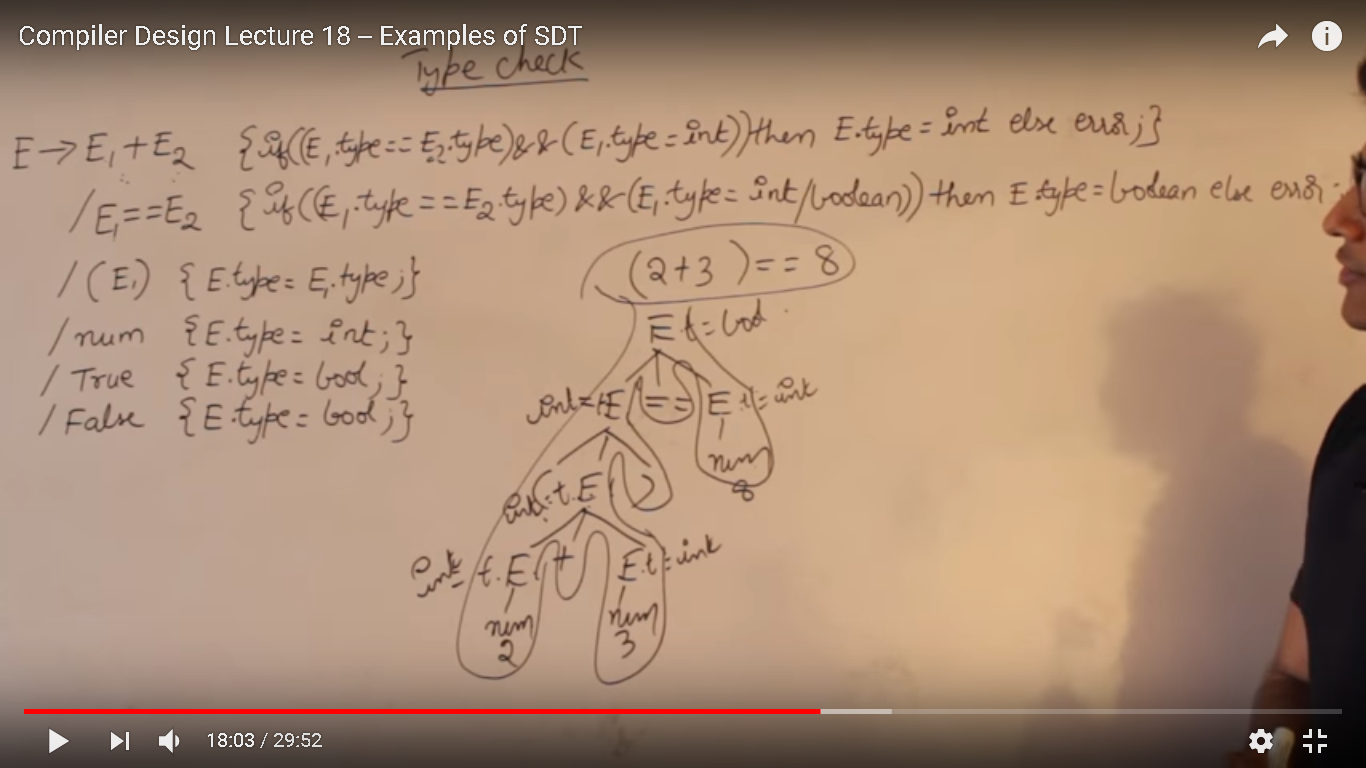 Compiler Design Lecture 18 – Examples of SDT
Type check
E → E₁ + E₂ {if((E₁.type == E₂.type) && (E₁.type = int)) then E.type = int else error;}
/ E₁ == E₂ {if((E₁.type == E₂.type) && (E₁.type = int/boolean)) then E.type = boolean else error
/ (E₁) { E.type = E₁.type ;}
(2+3 ) == 8
/ num { E.type = int ; }
E t = bool
/ True { E.type = bool ; }
/ False { E.type = bool ; }
int = t E == E t = int
num
8
int = t. E )
int = t. E + E. t = int
num num
2 3
18:03 / 29:52